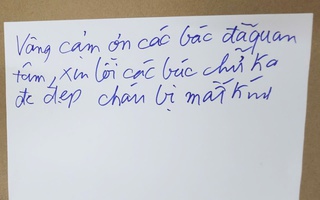 Vâng cảm ơn các bác đã quan
tâm, xin lỗi các bác chữ ko
đc đẹp cháu bị mất kính